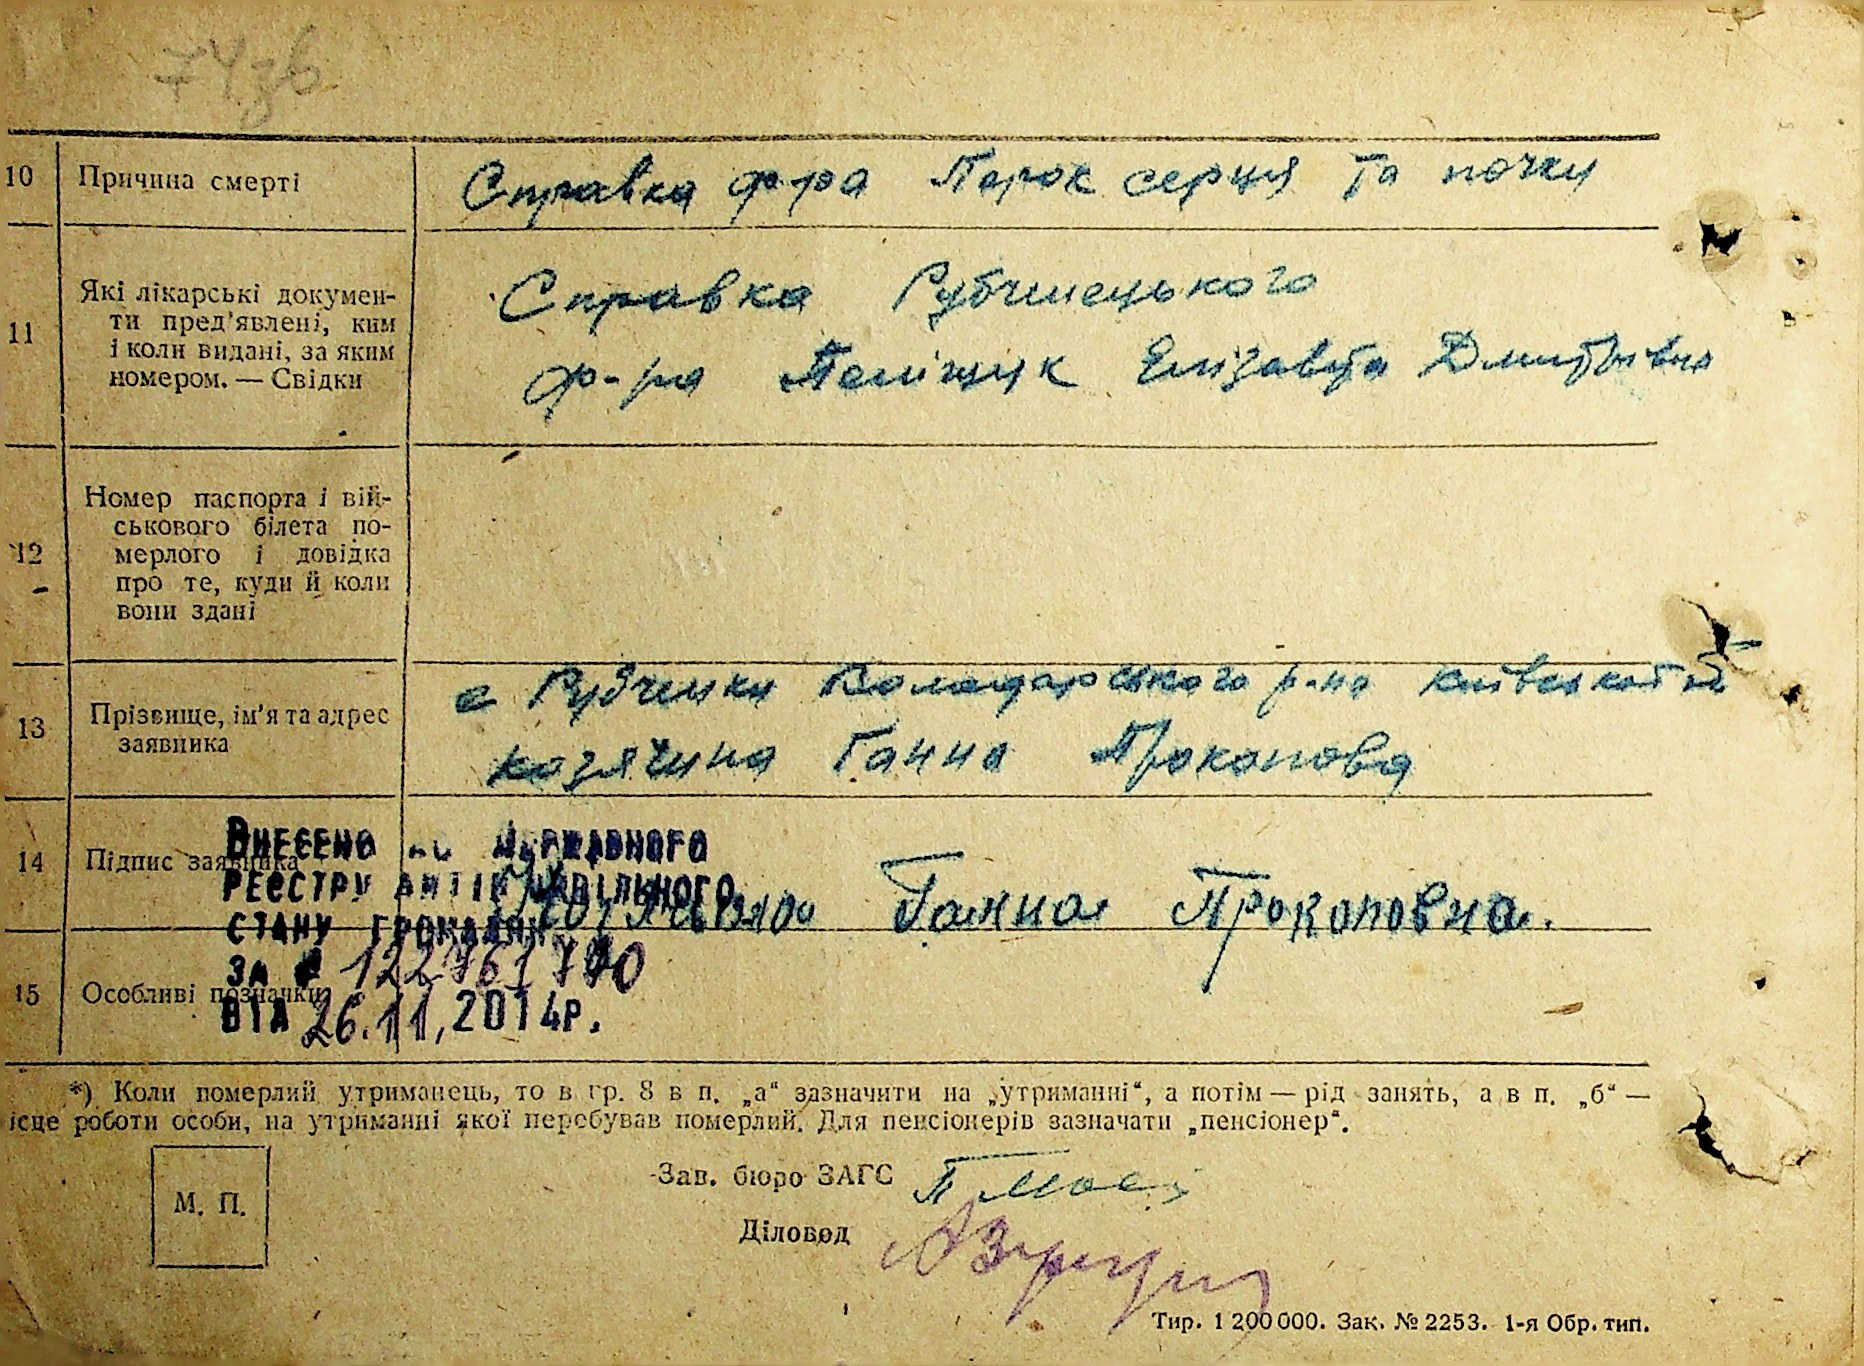 74зв
10 Причина смерті Справка ф-ра Порок серця та почки
11 Які лікарські докумен-
ти пред'явлені, ким
і коли видані, за яким
номером. — Свідки
Справка
ф-ра Елізавета Дмитрівна
12 Номер паспорта і вій-
ськового білета по-
мерлого і довідка
про те, куди й коли
вони здані
13 Прізвище, ім'я та адрес
заявника
с Рубченки Володарського р-на
Козячина Ганна Прокопова
14 Підпис заявника
Ганна Прокоповна.
15 Особливі позначки
Внесено до Державного
реєстру актів цивільного
стану громадян
за №
від 26.11.2014р.
*) Коли померлий утриманець, то в гр. 8 в п. „а“ зазначити на „утриманні“, а потім — рід занять, а в п. „б“ —
ісце роботи особи, на утриманні якої перебував померлий. Для пенсіонерів зазначати „пенсіонер“.
М. П.
Зав. бюро ЗАГС
Діловод
Тир. 1 200 000. Зак. № 2253. 1-я Обр. тип.